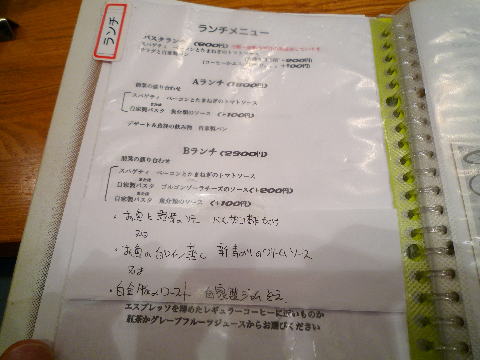 ランチ
ランチメニュー
パスタランチ
スパゲティ ベーコンとたまねぎのトマトソース
サラダと自家製パン
Aランチ
前菜の盛り合わせ
スパゲティ ベーコンとたまねぎのトマトソース
または
自家製パスタ 魚介類のソース (+100円)
デザート&食後の飲み物 自家製パン
Bランチ (2300円)
前菜の盛り合わせ
スパゲティ ベーコンとたまねぎのトマトソース
または
自家製パスタ ゴルゴンゾーラチーズのソース(+200円)
または
自家製パスタ 魚介類のソース (+100円)
・お魚と野菜の
・お魚の白ワイン蒸し 新青のりのクリームソース
又は
・ロースト 自家製
エスプレッソを薄めたレギュラーコーヒーに近いものか
紅茶かグレープフルーツジュースからお選びください